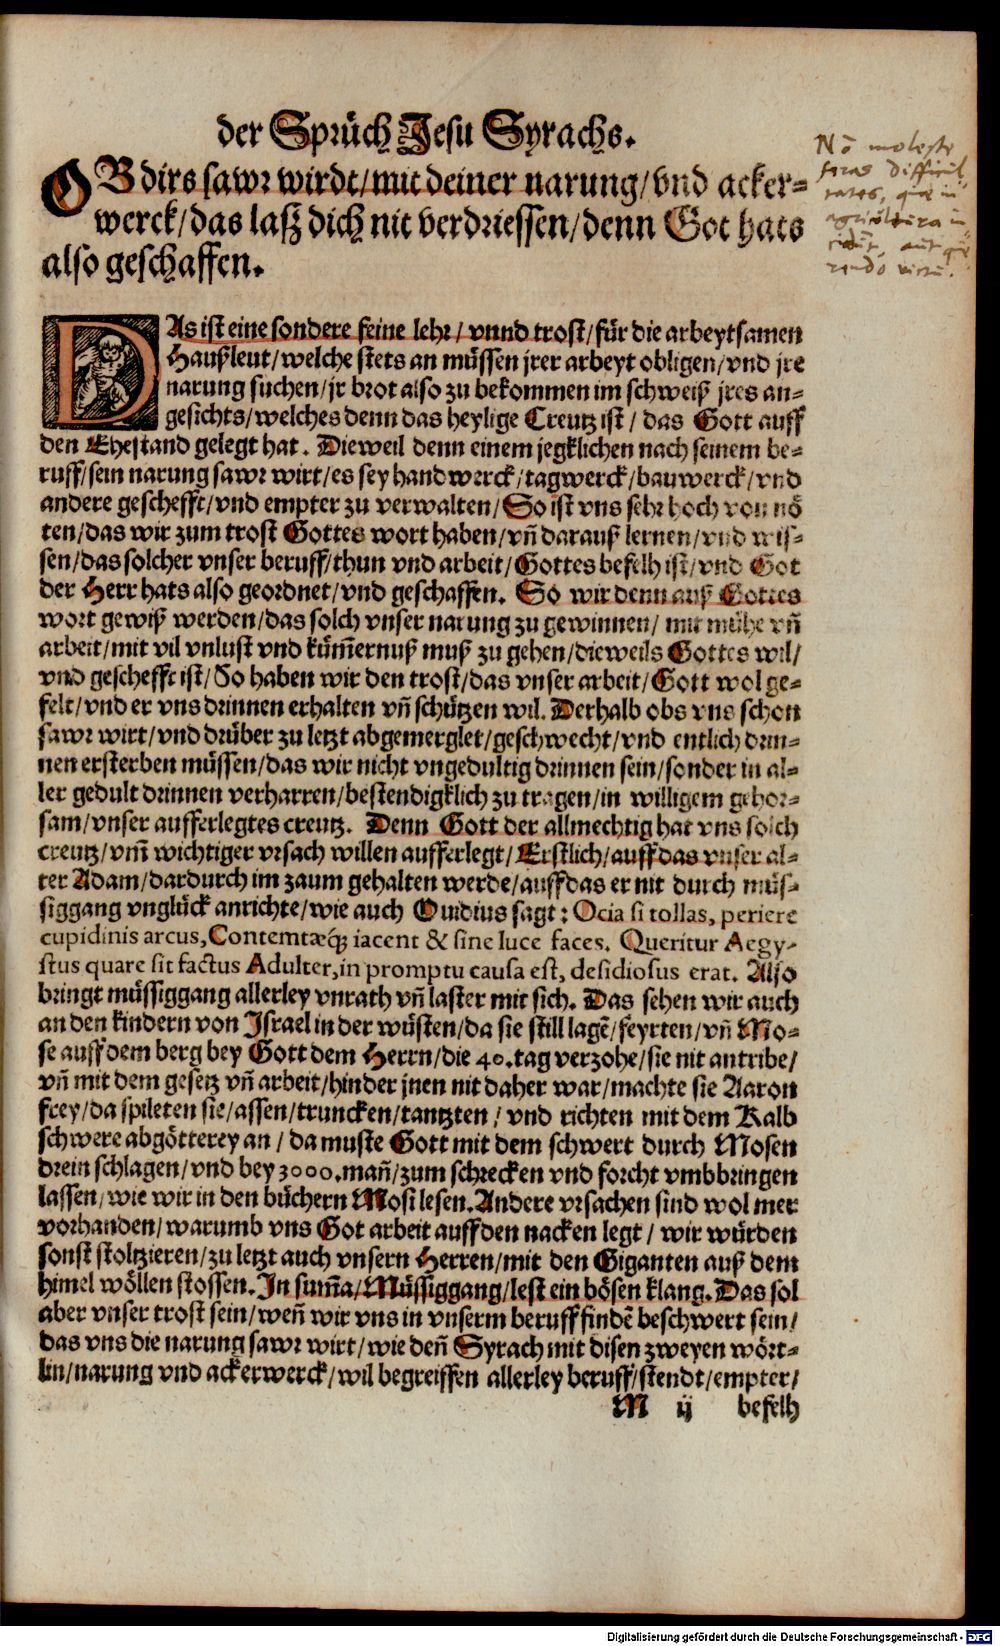 der Sprüch Jesu Syrachs.
OB dirs sawr wirdt/mit deiner narung/vnd acker-
werck/das laß dich nit verdriessen/denn Got hats
also geschaffen.
Nō moleste
feras difficul
tates, quæ in
agricultura in
aut
DAs ist eine sondere feine lehr/ vnnd trost/für die arbeytsamen
Haußleut/welche stets an müssen jrer arbeyt obligen/vnd jre
narung suchen/jr brot also zu bekommen im schweiß jres an-
gesichts/welches denn das heylige Creutz ist/ das Gott auff
den Ehestand gelegt hat. Dieweil denn einem jegklichen nach seinem be-
ruff/sein narung sawr wirt/es sey handwerck/tagwerck/bauwerck/vnd
andere geschefft/vnd empter zu verwalten/So ist vns sehr hoch von nö
ten/das wir zum trost Gottes wort haben/vñ darauß lernen/vnd wis-
sen/das solcher vnser beruff/thun vnd arbeit/Gottes befelh ist/vnd Got
der Herr hats also geordnet/vnd geschaffen. So wir denn auß Gottes
wort gewiß werden/das solch vnser narung zu gewinnen/ mit mühe vñ
arbeit/mit vil vnlust vndküm̃ernuß muß zu gehen/dieweils Gottes wil/
vnd geschefft ist/So haben wir den trost/das vnser arbeit/Gott wol ge-
felt/vnd er vns drinnen erhalten vñ schützen wil. Derhalb obs vns schon
sawr wirt/vnd drüber zu letzt abgemerglet/geschwecht/vnd entlich drin-
nen ersterben müssen/das wir nicht vngedultig drinnen sein/sonder in al-
ler gedult drinnen verharren/bestendigklich zu tragen/in willigem gehor-
sam/vnser aufferlegtes creutz. Denn Gott der allmechtig hat vns solch
creutz/vm̃ wichtiger vrsach willen aufferlegt/Erstlich/auff das vnser al-
ter Adam/dardurch im zaum gehalten werde/auff das er nit durch müs-
siggang vnglück anrichte/wie auch Ouidius sagt: Ocia si tollas, periere
cupidinis arcus, Contemtæq́; iacent & sine luce faces. Queritur Aegy-
stus quare sit factus Adulter, in promptu causa est, desidiosus erat. Also
bringt müssiggang allerley vnrath vñ laster mit sich. Das sehen wir auch
an den kindern von Israel in der wüsten/da sie still lagẽ/feyrten/vñ Mo-
se auff dem berg bey Gott dem Herrn/die 40. tag verzohe/sie nit antribe/
vñ mit dem gesetz vñ arbeit/hinder jnen nit daher war/machte sie Aaron
frey/da spileten sie/assen/truncken/tantzten/ vnd richten mit dem Kalb
schwere abgötterey an/ da muste Gott mit dem schwert durch Mosen
drein schlagen/vnd bey 3000. mañ/zum schrecken vnd forcht vmbbringen
lassen/wie wir in den büchern Mosi lesen. Andere vrsachen sind wol mer
vorhanden/warumb vns Got arbeit auff den nacken legt/ wir würden
sonst stoltzieren/zu letzt auch vnsern Herren/mit den Giganten auß dem
himel wöllen stossen. In sum̃a/Müssiggang/lest ein bösen klang. Das sol
aber vnser trost sein/weñ wir vns in vnserm beruff findẽ beschwert sein/
das vns die narung sawr wirt/wie deñ Syrach mit disen zweyen wört-
lin/narung vnd ackerwerck/wil begreiffen allerley beruff/stendt/empter/
M ij befelh
Digitalisierung gefördert durch die Deutsche Forschungsgemeinschaft - DFG